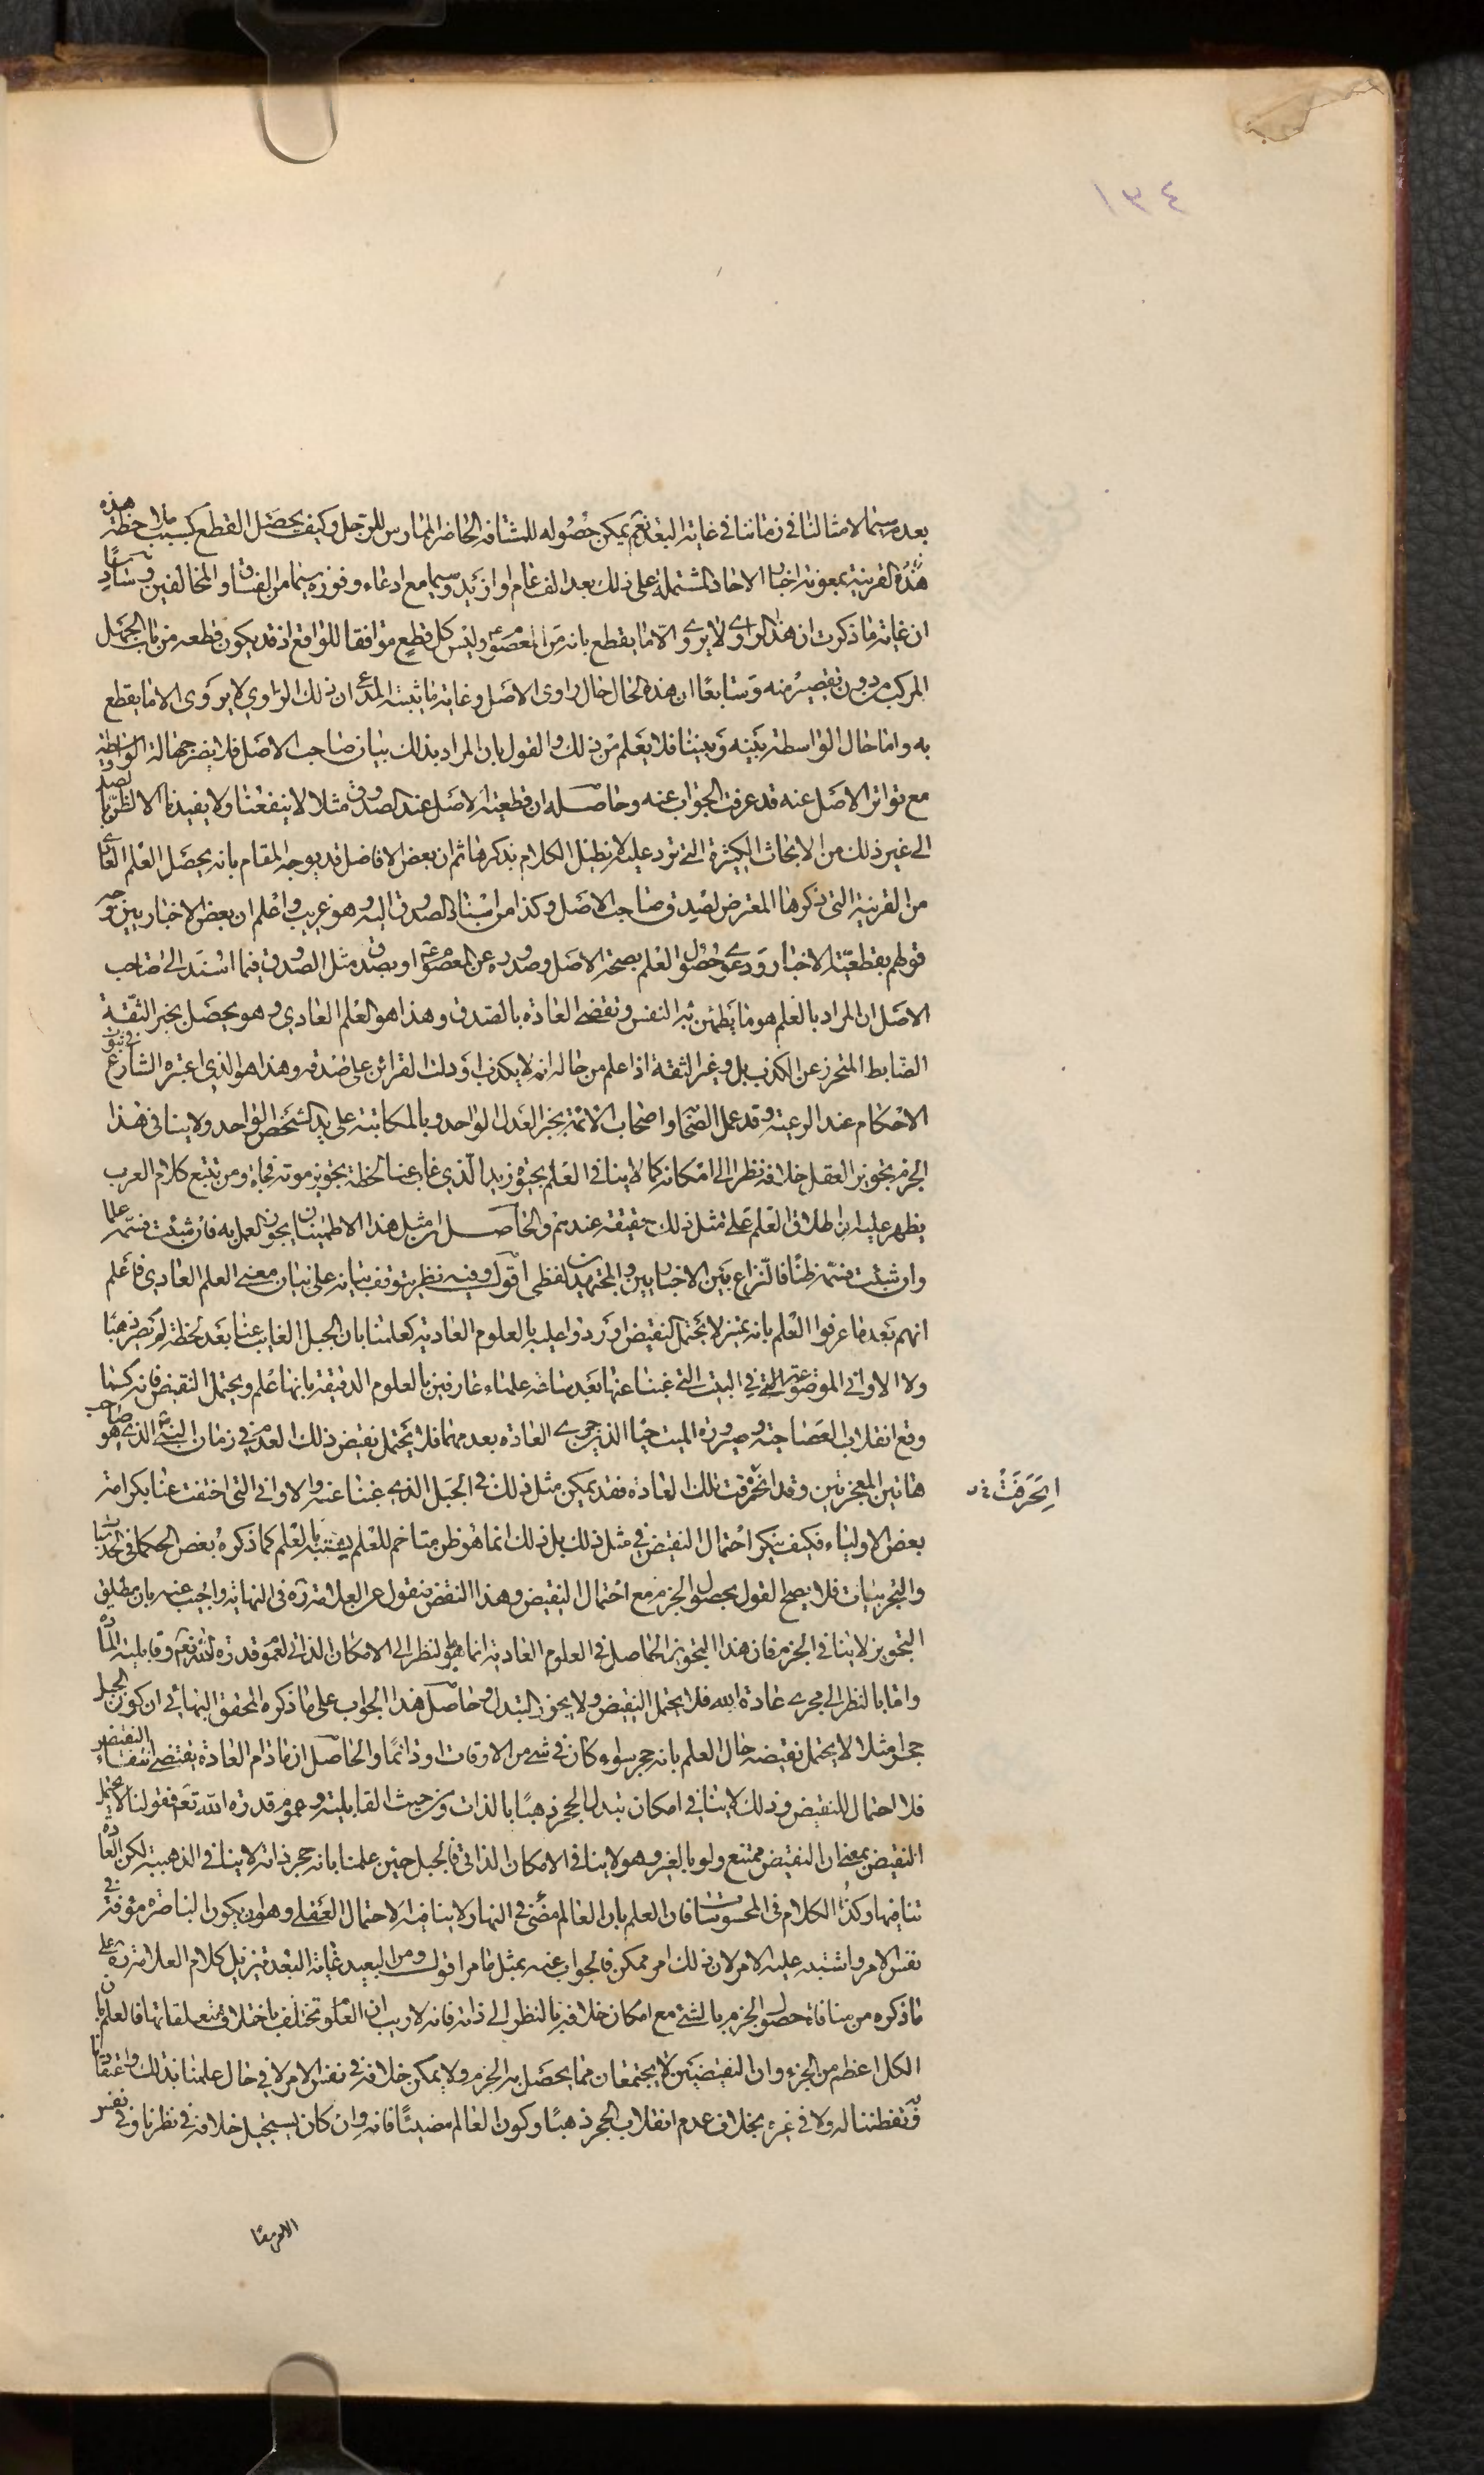 ١٣٤
بعده سيما لامثالنا في زماننا في غاية البعد نعم يمكن حصوله للمشافه الحاضر الممارس للرجل وكيف يحصل القطع بسبب ملاحظة هذه
هذه القرينة بمعونة اخبار الاحاد المشتملة على ذلك بعد الف عام او ازيد وسيما مع ادعاء وفوره سيما من الفساق والمخالفين وسادسًا
ان غاية ما ذكرت ان هذا الراوي لا يروي الا ما يقطع بانه من المعصوم ع وليس كل قطع موافقا للواقع اذ قد يكون قطعه من باب الجهل
المركب من دون تقصير منه وسابعًا ان هذه الحال حال راوى الاصل وغاية ما يثبته المدعي ان ذلك الراوي لا يروى الا ما يقطع
به واما حال الواسطة بينه وبيننا فلا يعلم من ذلك والقول بان المراد بذلك بيان صاحب الاصل فلا يضر جهالة الواسطة
مع تواتر الاصل عنه قد عرفت الجواب عنه وحاصله ان قطعية الاصل عند الصدوق مثلا لا ينفعنا ولا يفيدنا الا الظن
الى غير ذلك من الابحاث الكثيرة التي ترد عليه لا نطيل الكلام بذكرها ثم ان بعض الافاضل قد يوجه المقام بانه يحصل العلم العادي
من القرينة التي ذكرها المعترض لصدق صاحب الاصل وكذا من اسناد الصدوق اليه وهو غريب واعلم ان بعض الاخباريين وجه
قولهم بقطعية الاخبار ودعوى حصول العلم بصحة الاصل وصدوره عن المعصوم ع او بصدق مثل الصدوق فيما اسند الى صاحب
الاصل ان المراد بالعلم هو ما يطمئن به النفس وتقضي العادة بالصدق وهذا هو العلم العادي وهو يحصل بخبر الثقة
الضابط المتحرز عن الكذب بل وغير الثقة اذا علم من حاله انه لا يكذب او دلت القرائن على صدقه وهذا هو الذي اعتبره الشارع في ثبوت
الاحكام عند الرعية وقد عمل الصحابة واصحاب الائمة بخبر العدل الواحد وبالمكاتبة على يد الشخص الواحد ولا ينافي هذا
الجزم تجويز العقل خلافه نظرا الى امكانه كما لا ينافي العلم بحيوة زيد الذي غاب عنا لحظة تجويز موته فجاءة ومن تتبع كلام العرب
يظهر عليه ان اطلاق العلم على مثل ذلك حقيقة عندهم والحاصل ان مثل هذا الاطمينان يجوز العمل به فان شئت فسمّه علما
وان شئت فسمّه ظنًا فالنزاع بين الاخباريين والمجتهدين لفظى اقول وفيه نظر يتوقف بيانه على بيان معنى العلم العادي فاعلم
انهم بعد ما عرفوا العلم بانه تميز لا يحتمل النقيض اوردوا عليه بالعلوم العادية كعلمنا بان الجبل الغايب عنا بعد لحظة لم يصر ذهبًا
ولا الاواني الموضوعة التي في البيت التي غبنا عنها بعد ساعة علماء عارفين بالعلوم الدقيقة بانها علم ويحتمل النقيض فانه كما
وقع انقلاب العصا حية وصيرورة الميت حيا الذي جرى العادة بعدمهما فلا يحتمل نقيض ذلك العدم في زمان النبي الذي هو صاحب
هاتين المعجزتين وقد انخرقت تلك العادة فقد يمكن مثل ذلك في الجبل الذي غبنا عنه والاواني التي اختفت عنا بكرامة
انخرقت
بعض الاولياء فكيف ينكر احتمال النقيض في مثل ذلك بل ذلك انما هو ظن متاخم للعلم يشتبه بالعلم كما ذكره بعض الحكماء في الحدسيات
والتجربيات فلا يصح القول بحصول الجزم مع احتمال النقيض وهذا النقض منقول عن العلامة ره في النهاية واجيب عنه بان مطلق
التجويز لا ينافي الجزم فان هذا التجويز الحاصل في العلوم العادية انما هو بالنظر الى الامكان الذاتي لعموم قدرة الله تعم وقابلية المادة
واما بالنظر الى مجرى عادة الله فلا يحتمل النقيض ولا يجوز التبدل وحاصل هذا الجواب على ما ذكره المحقق البهائي ان كون الجبل
حجرا مثلا لا يحتمل نقيضه حال العلم بانه حجر سواء كان في شيء من الاوقات او دائمًا والحاصل ان ما دام العادة يقتضي انتفاء النقيض
فلا احتمال للنقيض وذلك لا ينافي امكان تبدل الحجر ذهبًا بالذات ومن حيث القابلية وعموم قدرة الله تعم فقولنا لا يحتمل
النقيض بمعنى ان النقيض ممتنع ولو بالغير وهو لا ينافي الامكان الذاتي فالجبل حين علمنا بانه حجر ذاته لا ينافي الذهبية لكن العادة
تنافيها وكذا الكلام في المحسوسات فان العلم بان العالم مضئ في النهار لا ينافيه الاحتمال العقلي وهو ان يكون الباصرة مؤفة في
نفس الامر واشتبه عليه الامر لان ذلك امر ممكن فالجواب عنه بمثل ما مر اقول ومن البعيد غاية البعد تنزيل كلام العلامة ره على
ما ذكره من منافاة حصول الجزم بالشئ مع امكان خلافه بالنظر الى ذاته فانه لا ريب ان العلوم تختلف باختلاف متعلقاتها فالعلم بان
الكل اعظم من الجزء وان النقيضين لا يجتمعان مما يحصل به الجزم ولا يمكن خلافه في نفس الامر لا في حال علمنا بذلك واعتقادنا
وتفطننا له ولا في غيره بخلاف عدم انقلاب الحجر ذهبًا وكون العالم مضيئًا فانه وان كان يستحيل خلافه في نظرنا وفي نفس
الامر ايضًا